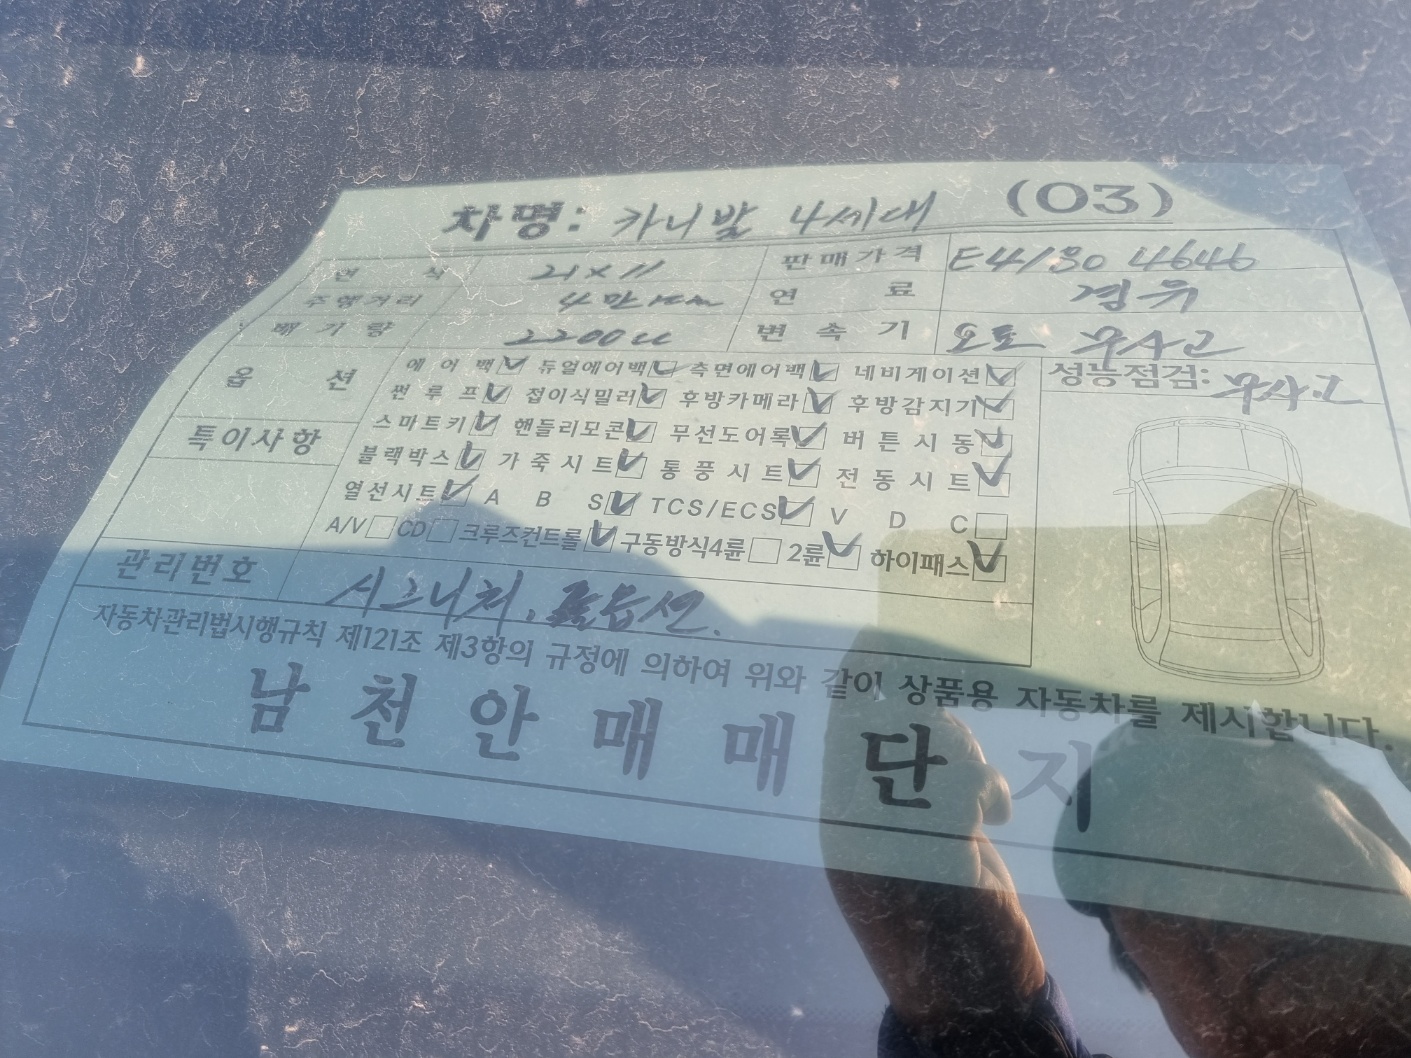 차명: 카니발 4세대 (03)
연 식 21x11 판매가격
주행거리 4만km 연 료 경유
배기량 2200cc 변속기 오토 무사고
옵 션 에어백 ☑ 듀얼에어백 ☑ 측면에어백 ☑ 네비게이션 ☑ 성능점검: 무사고
썬루프 ☑ 접이식밀러 ☑ 후방카메라 ☑ 후방감지기 ☑
특이사항 스마트키 ☑ 핸들리모콘 ☑ 무선도어록 ☑ 버튼시동 ☑
블랙박스 ☑ 가죽시트 ☑ 통풍시트 ☑ 전동시트 ☑
열선시트 ☑ A B S ☑ TCS/ECS ☑ V D C ☐
A/V ☐ CD ☐ 크루즈컨트롤 ☑ 구동방식4륜 ☐ 2륜 ☑ 하이패스 ☑
관리번호 시그니처. 풀옵션.
자동차관리법시행규칙 제121조 제3항의 규정에 의하여 위와 같이 상품용 자동차를 제시합니다.
남천안매매단지